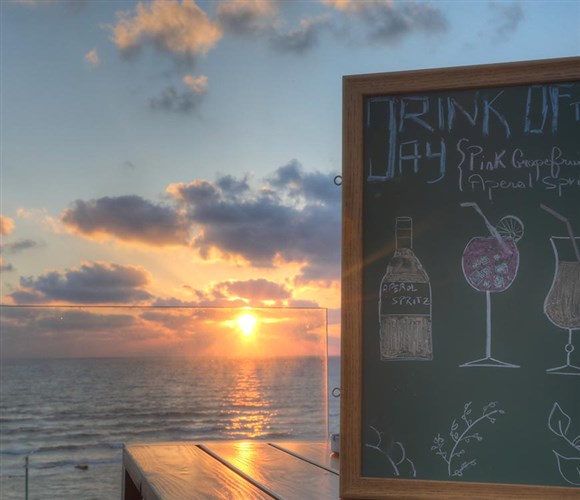 DRINK OF
DAY
{Pink Grapefrui
Aperol Spr
APEROL
SPRITZ